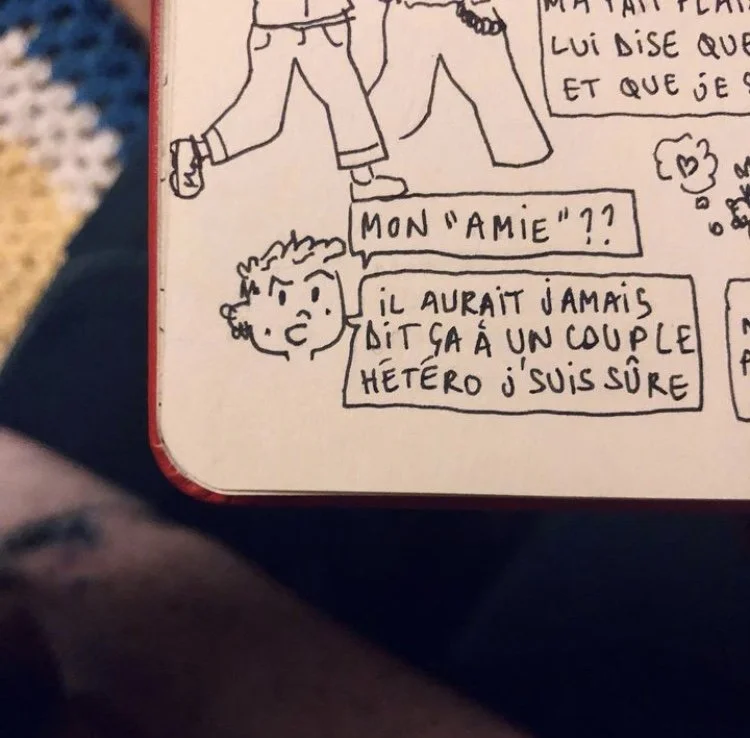 LUI DISE QUE
ET QUE JE
MON "AMIE"??
IL AURAIT JAMAIS
DIT ÇA À UN COUPLE
HÉTÉRO J'SUIS SÛRE